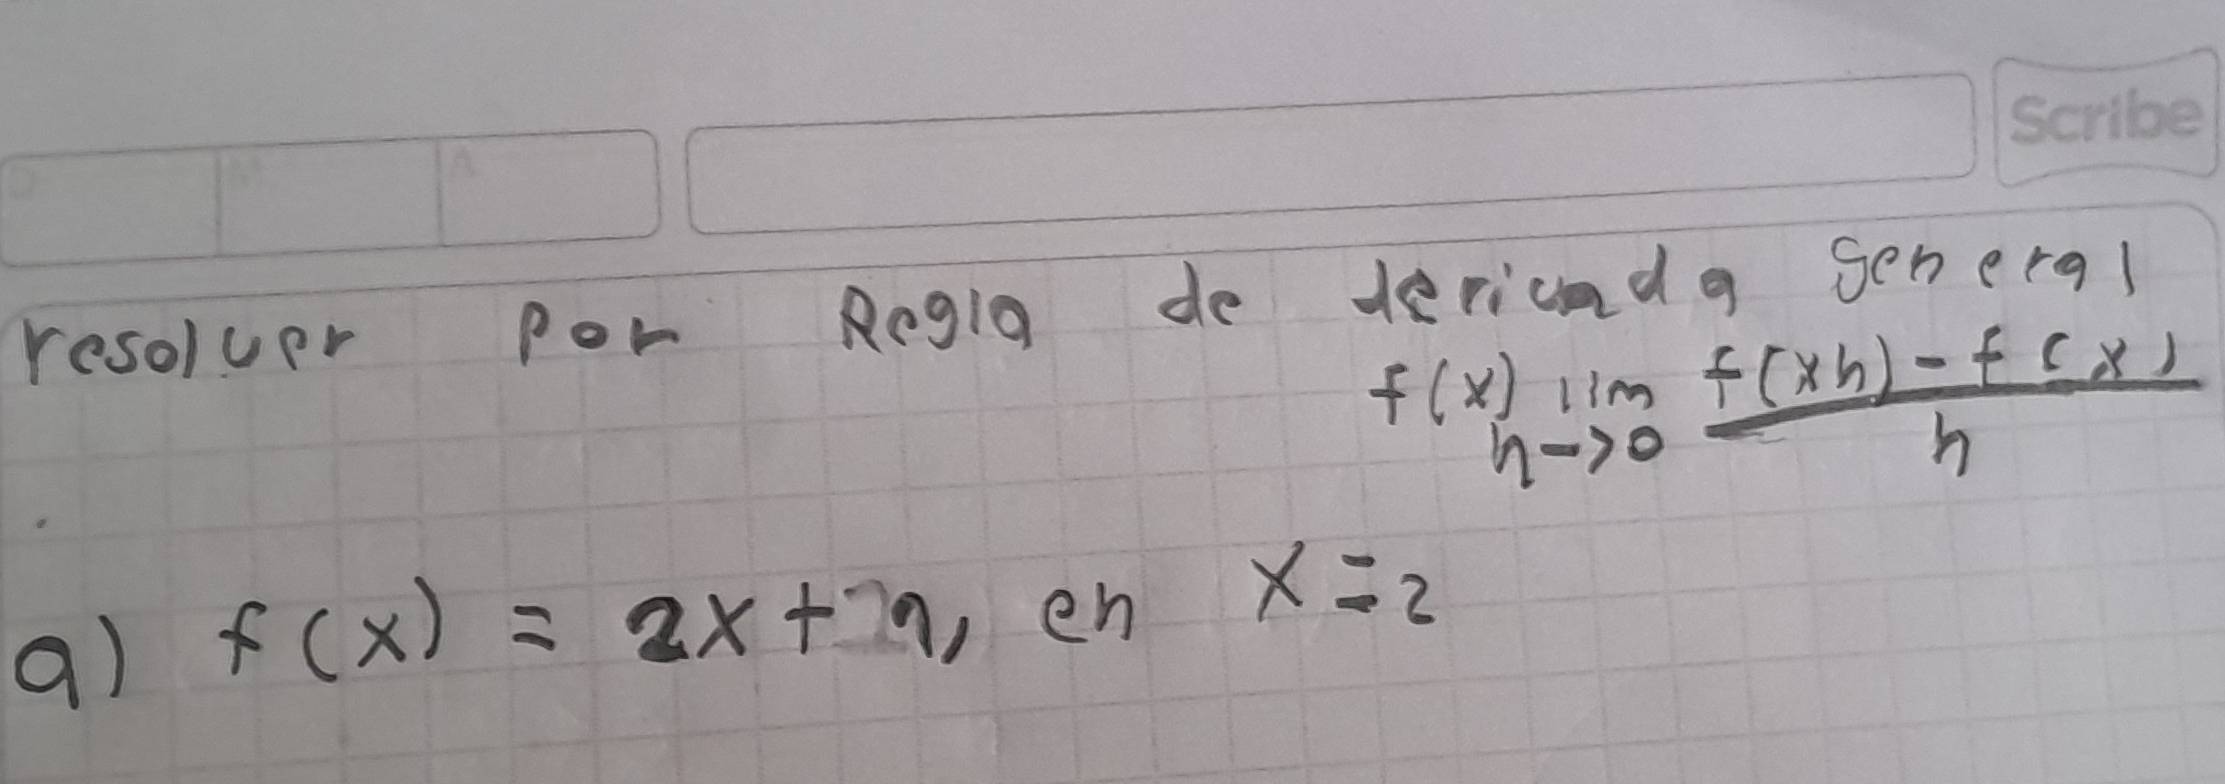 Scribe
resolver por Regla de derivada general
f(x) lim f(xh) - f(x)
h->0 h
a) f(x) = 2x+9, en x=2